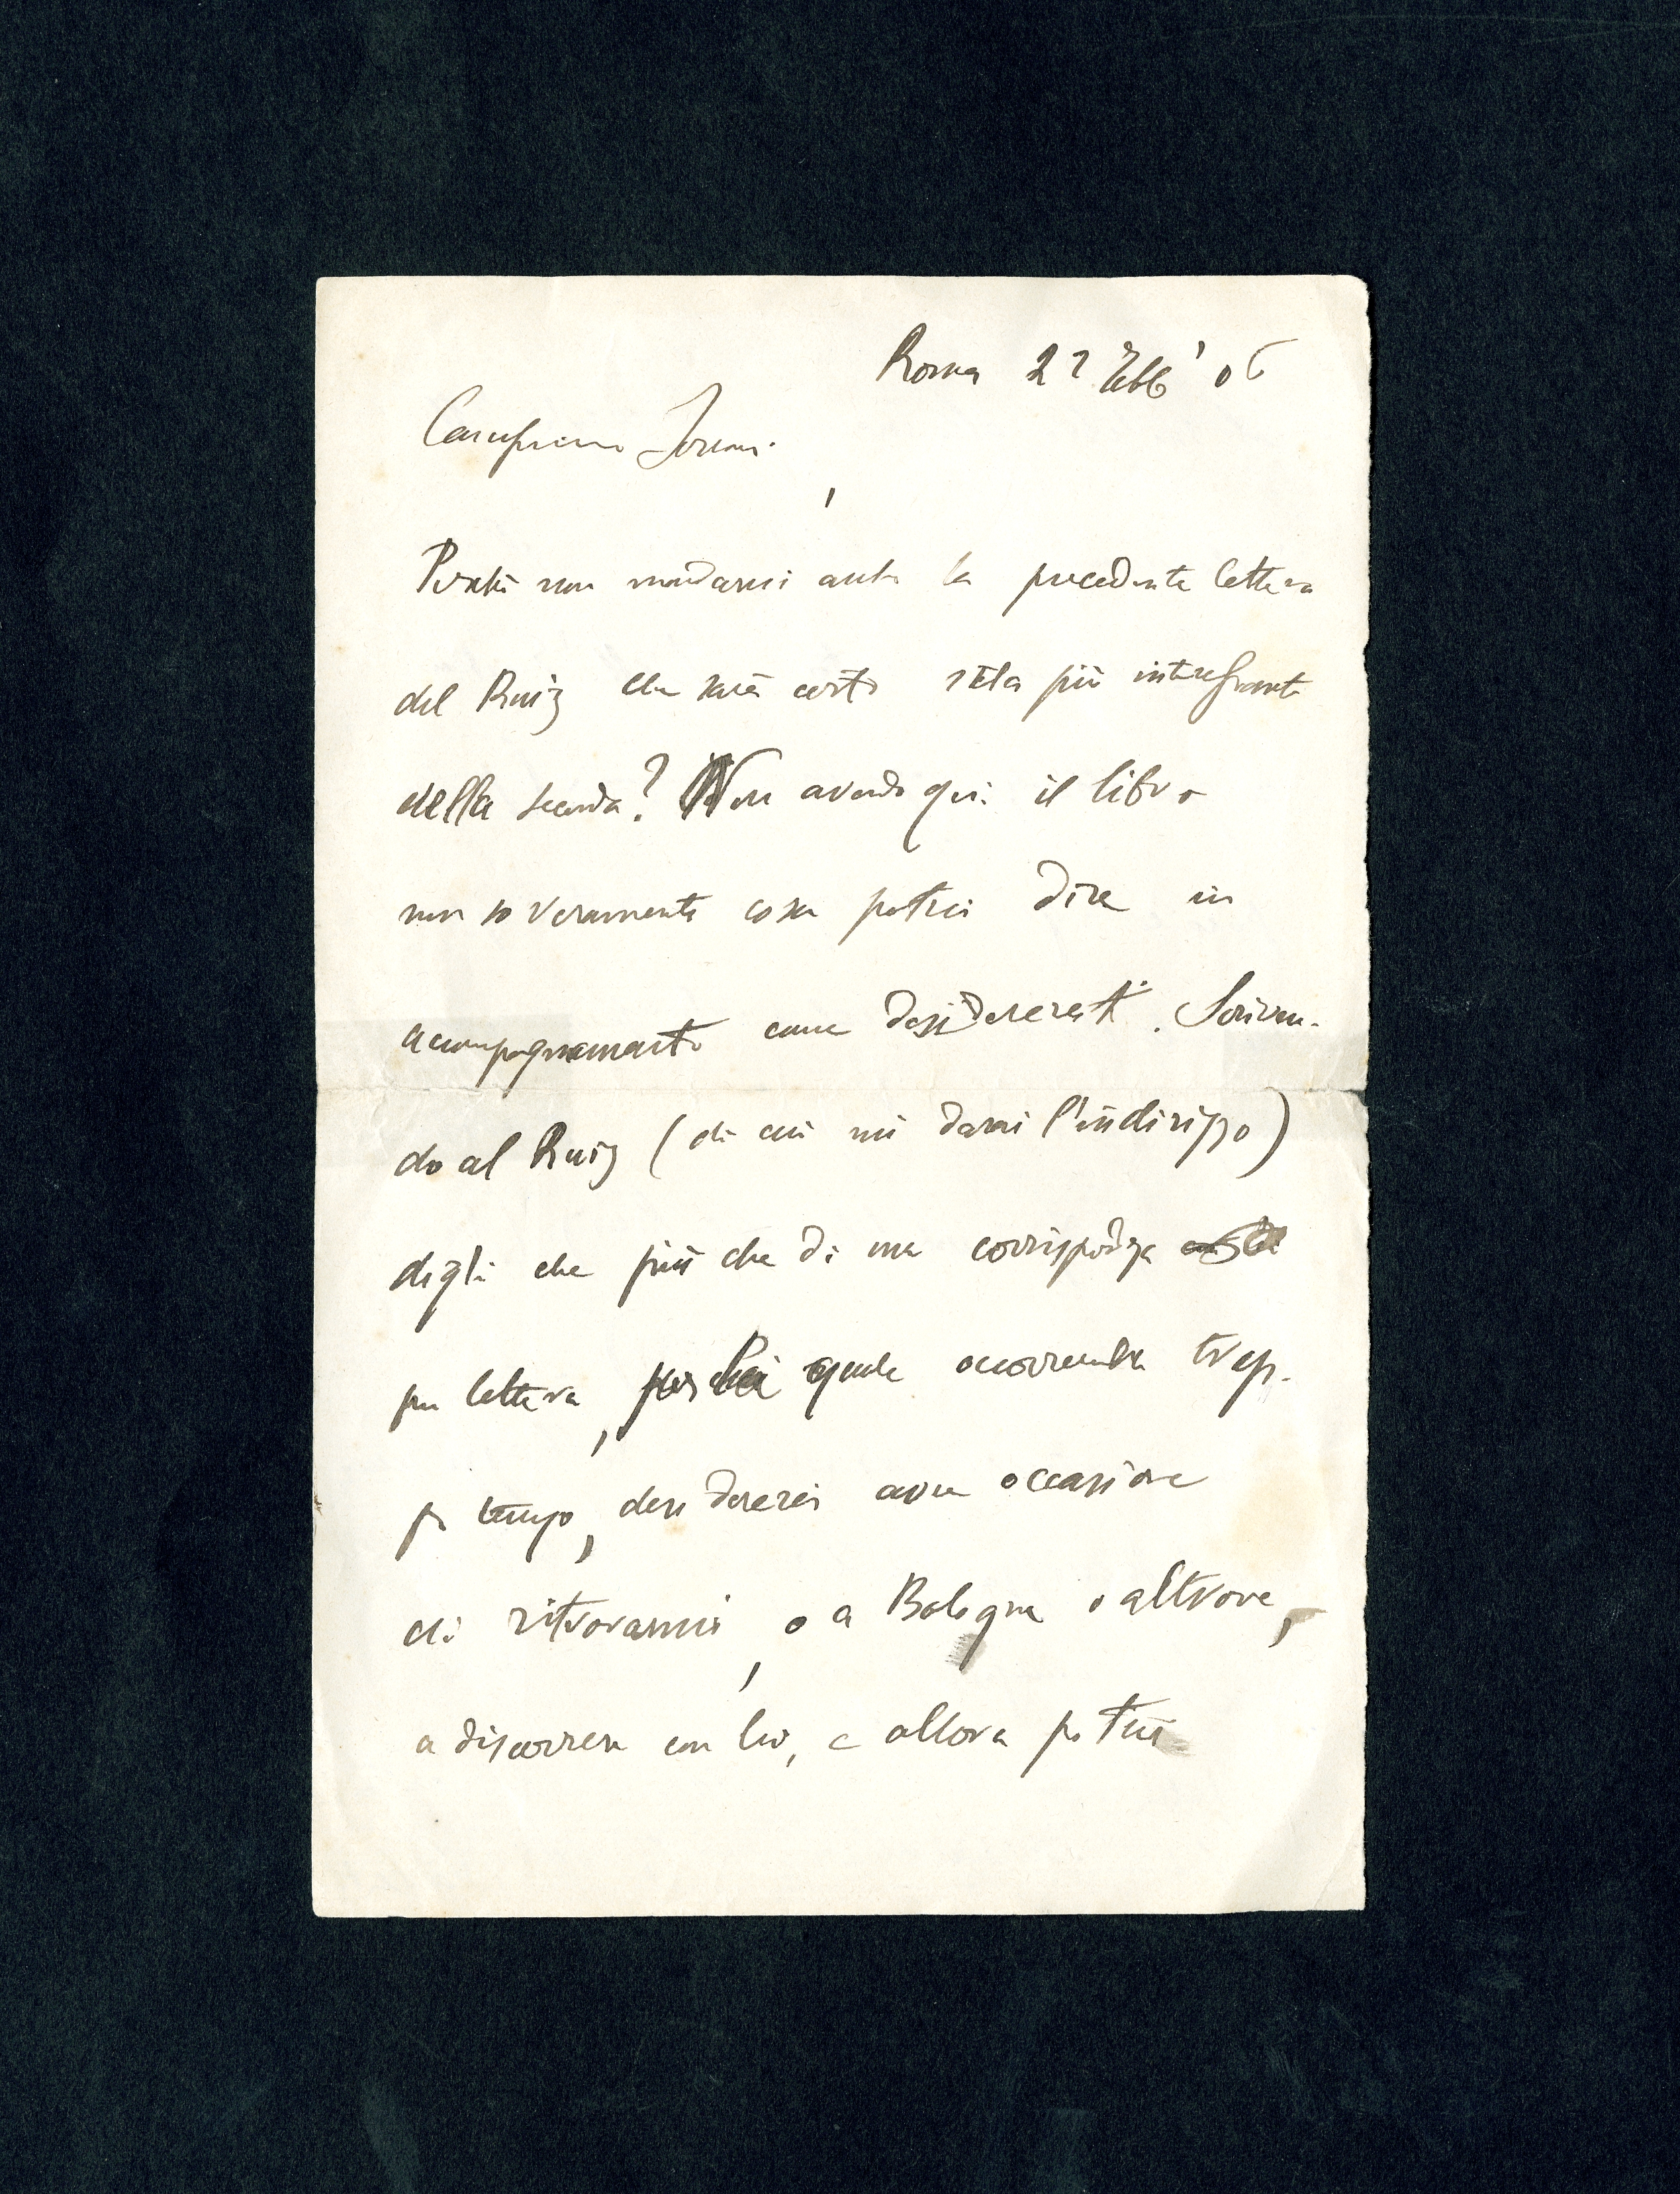 Roma 22 Febb' 06
Carissimo
Perchè non mandarmi anche la precedente lettera
del Ruiz che sarà certo stata più interessante
della seconda? Non avendo qui il libro
non so veramente cosa potrei dire in
accompagnamento come desidereresti. Scriven-
do al Ruiz (di cui mi darai l'indirizzo)
digli che più che di una corrispodza
per lettera, perchè quale occorrerebbe trop-
po tempo, desidererei avere occasione
di ritrovarmi, o a Bologna o altrove,
a discorrere con lui, e allora potrei